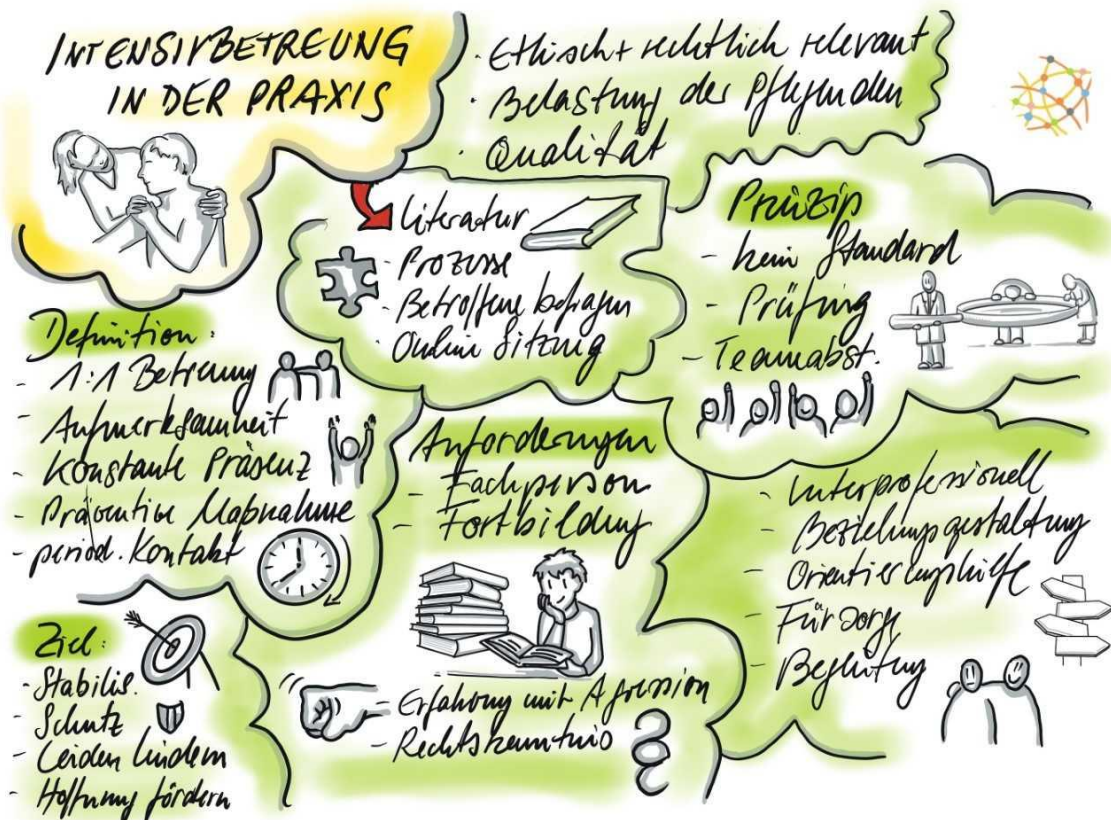 INTENSIVBETREUNG
IN DER PRAXIS
· Ethisch + rechtlich relevant
· Belastung der Pflegenden
· Qualität
Literatur
- Prozesse
- Betroffene befragen
- Online Sitzung
Prinzip
- kein Standard
- Prüfung
- Teamabst.
Definition:
- 1:1 Betreuung
- Aufmerksamkeit
- Konstante Präsenz
- Präventive Maßnahme
- period. Kontakt
Anforderungen
- Fachperson
- Fortbildung
- Erfahrung mit Agression
- Rechtskenntnis
- Interprofessionell
- Beziehungsgestaltung
- Orientierungshilfe
- Fürsorge
- Begleitung
Ziel:
- Stabilis.
- Schutz
- Leiden lindern
- Hoffnung fördern